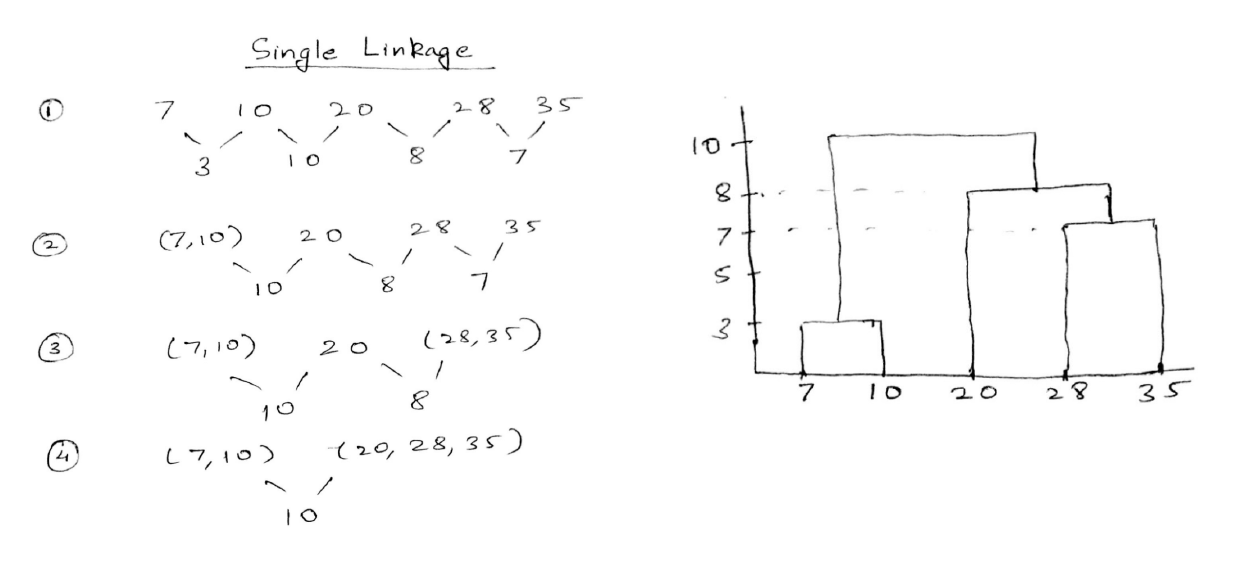 Single Linkage
① 7 10 20 28 35
3 10 8 7
② (7,10) 20 28 35
10 8 7
③ (7,10) 20 (28,35)
10 8
④ (7,10) (20, 28, 35)
10
10
8
7
5
3
7 10 20 28 35